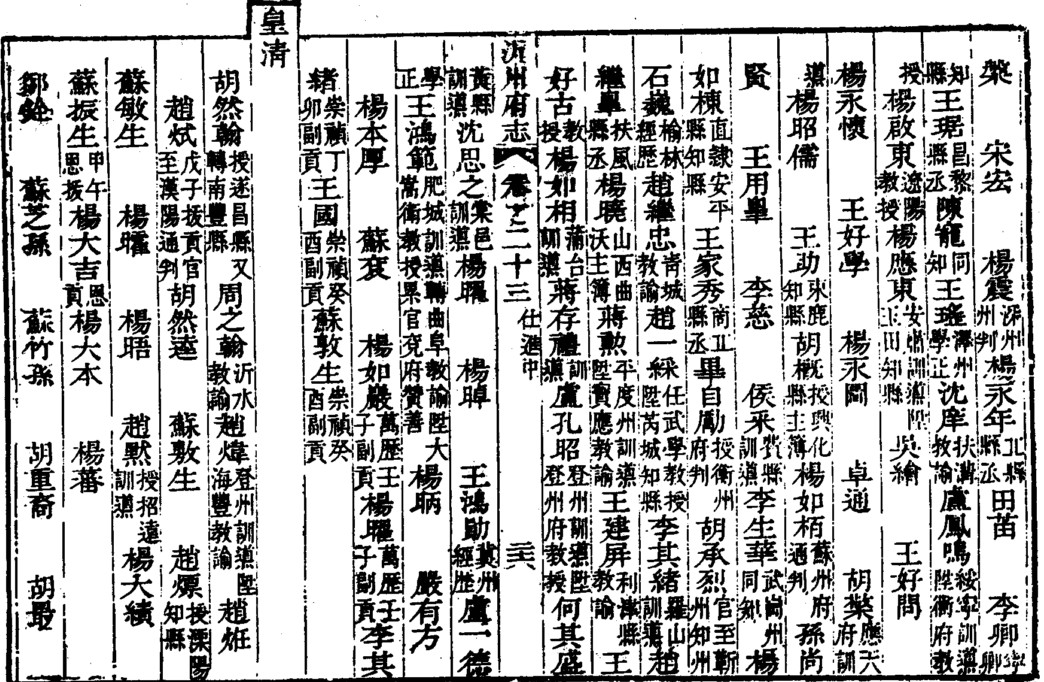 榮 宋宏 楊震沂州判楊永年丘縣縣丞田苗 李卿
知縣王琚昌黎縣丞陳寵同知王瑤澤州學正沈庠扶溝教諭盧鳳鳴綏寧訓導陞衡府教
授楊啟東遼陽教授楊應東安肅訓導陞玉田知縣吳繪 王好問
楊永懷 王好學 楊永閏 卓通 胡榮應天府訓
導楊昭儒 王助束鹿知縣胡概授興化縣主簿楊如栢蘇州府通判孫尚
賢 王用舉 李慈 侯采費縣訓導李生華武岡州同知楊
如棟直隸安平縣知縣王家秀商丘縣丞畢自勵授衡州府判胡承烈官至蘄州知州
石巍榆林經歷趙繼忠青城教諭趙一綵任武學教授陞芮城知縣李其緒羅山訓導趙
繼舉扶風縣丞楊曉山西曲沃主簿蔣勲平度州訓導陞寶應教諭王建屏利津縣教諭王
好古教授楊如相蒲台訓導蔣存禮訓導盧孔昭登州訓導陞登州府教授何其盛
沂州府志 卷之二十三 仕進中 二六
黃縣訓導沈思之棠邑訓導楊曜 楊暐 王鴻勛冀州經歷盧一德
學正王鴻範肥城訓導轉曲阜教諭陞大嵩衛教授累官兗府贊善楊昞 嚴有方
楊本厚 蘇袞 楊如嚴萬歷壬子副貢楊曜萬歷壬子副貢李其
緒崇禎丁卯副貢王國崇禎癸酉副貢蘇敦生崇禎癸酉副貢
皇清
胡然翰授遂昌縣又轉南豐縣周之翰沂水教諭趙煒登州訓導陞海豐教諭趙炡
趙烒戊子拔貢官至漢陽通判胡然逵 蘇敷生 趙熛授溧陽知縣
蘇敏生 楊㬦 楊晤 趙煭授招遠訓導楊大績
蘇振生甲午恩拔楊大吉恩貢楊大本 楊蕃
鄒銓 蘇芝孫 蘇竹孫 胡重裔 胡最